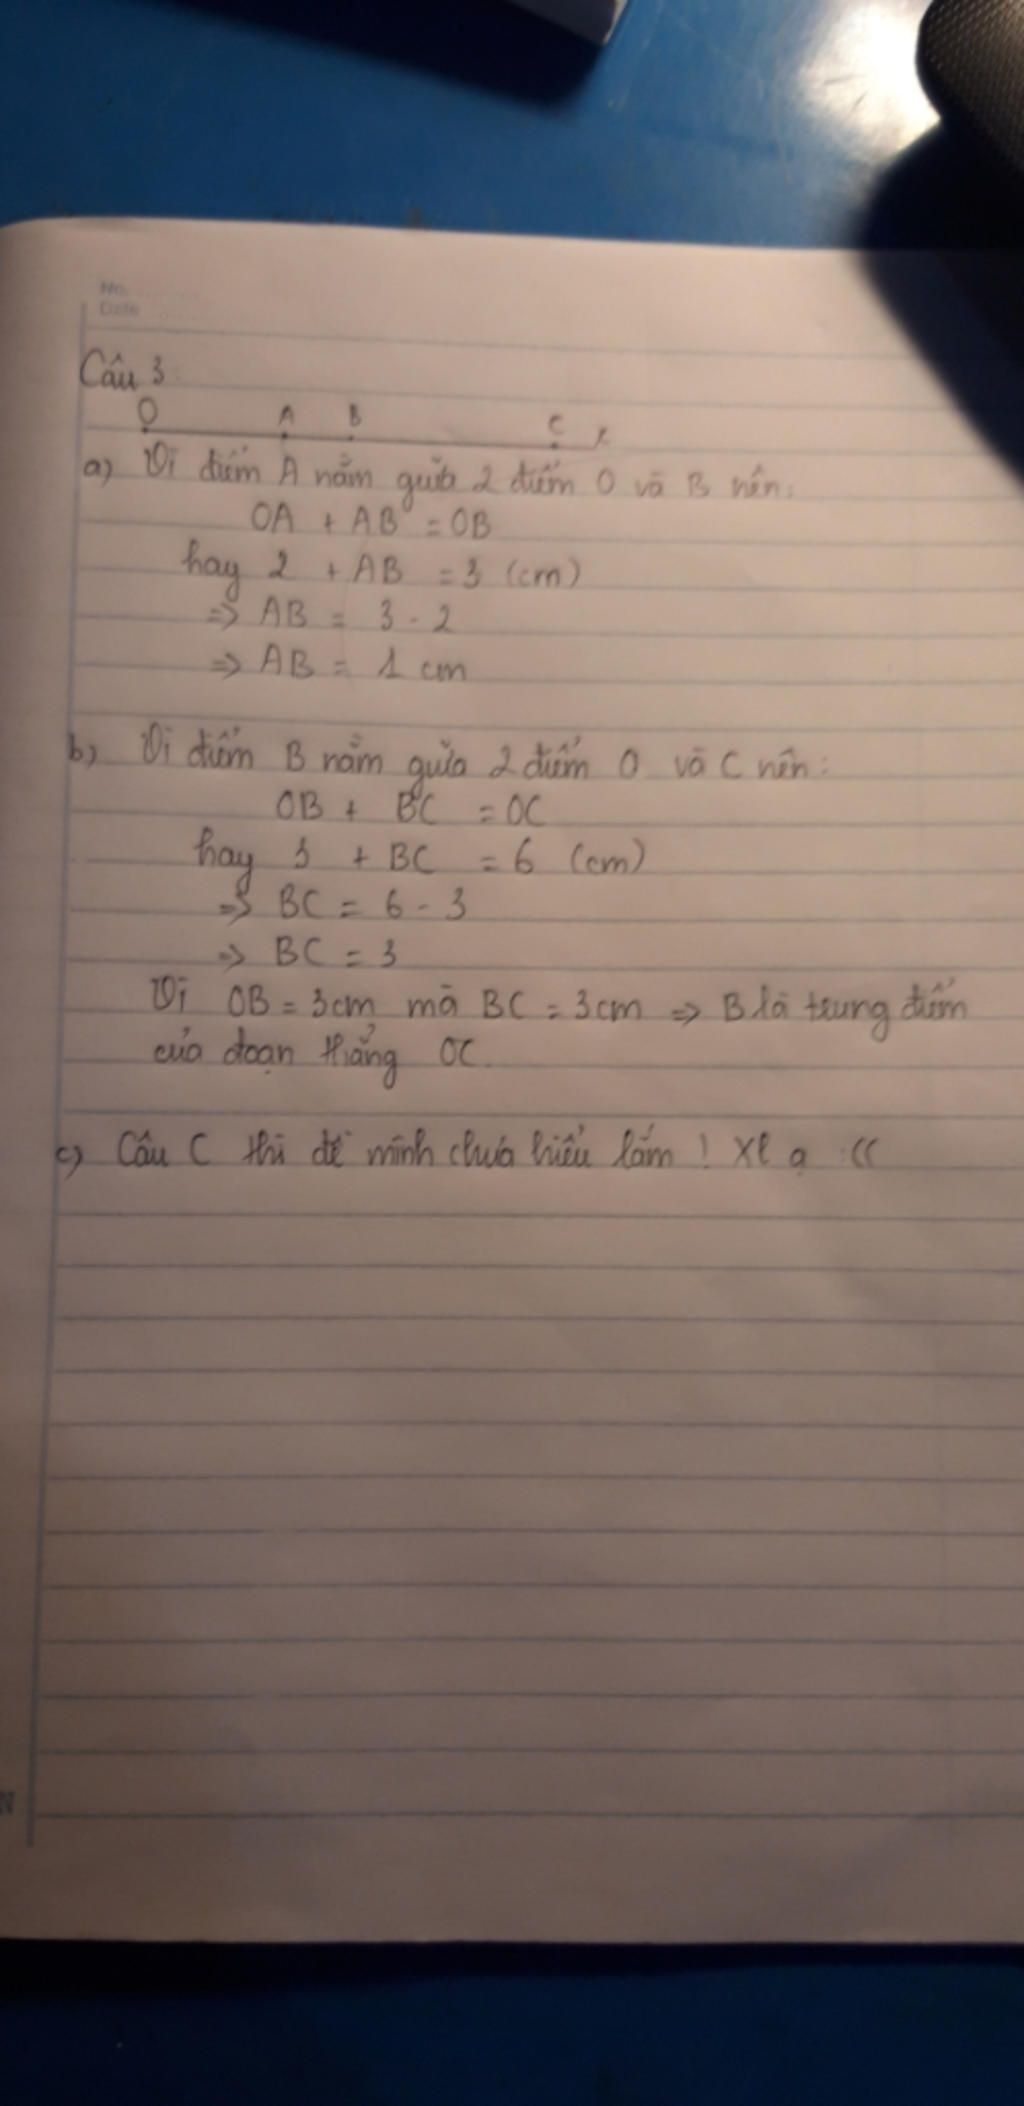 No.
Date
Câu 3:
O A B C x
a) Vì điểm A nằm giữa 2 điểm O và B nên:
OA + AB = OB
hay 2 + AB = 3 (cm)
=> AB = 3 - 2
=> AB = 1 cm
b) Vì điểm B nằm giữa 2 điểm O và C nên:
OB + BC = OC
hay 3 + BC = 6 (cm)
=> BC = 6 - 3
=> BC = 3
Vì OB = 3cm mà BC = 3cm => B là trung điểm
của đoạn thẳng OC.
c) Câu C thì đề mình chưa hiểu lắm ! Xl ạ :((
N